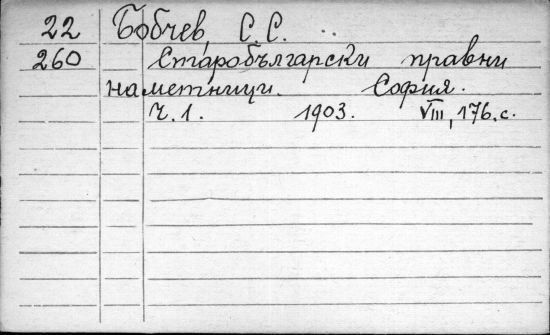 22 Бобчев С. С.
260 Старобългарски правни
наметници. София.
Ч. 1. 1903. VIII, 176. с.